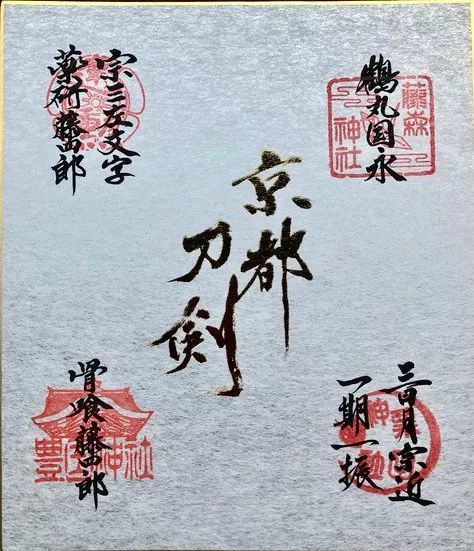 鶴丸国永
藤森
神社
宗三左文字
薬研藤四郎
京都
刀剣
三日月宗近
一期一振
骨喰藤四郎
豊国神社